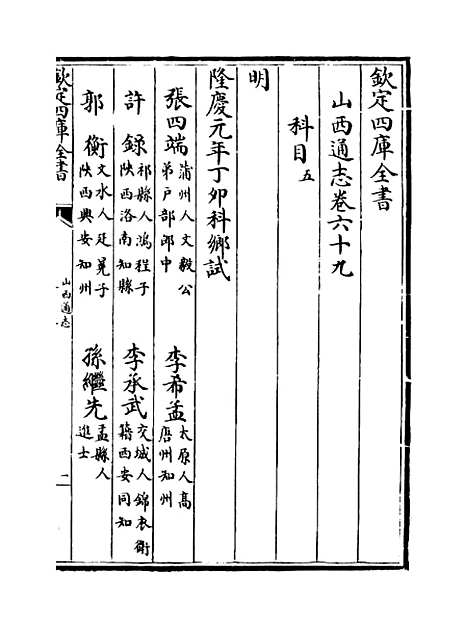 欽定四庫全書
山西通志卷六十九
科目五
明
隆慶元年丁卯科鄉試
張四端 蒲州人文毅公弟戶部郎中
李希孟 太原人高唐州知州
許錄 祁縣人鴻程子陝西洛南知縣
李承武 交城人錦衣衛籍西安同知
郭衡 文水人廷冕子陝西興安知州
孫繼先 盂縣人進士
欽定四庫全書
山西通志